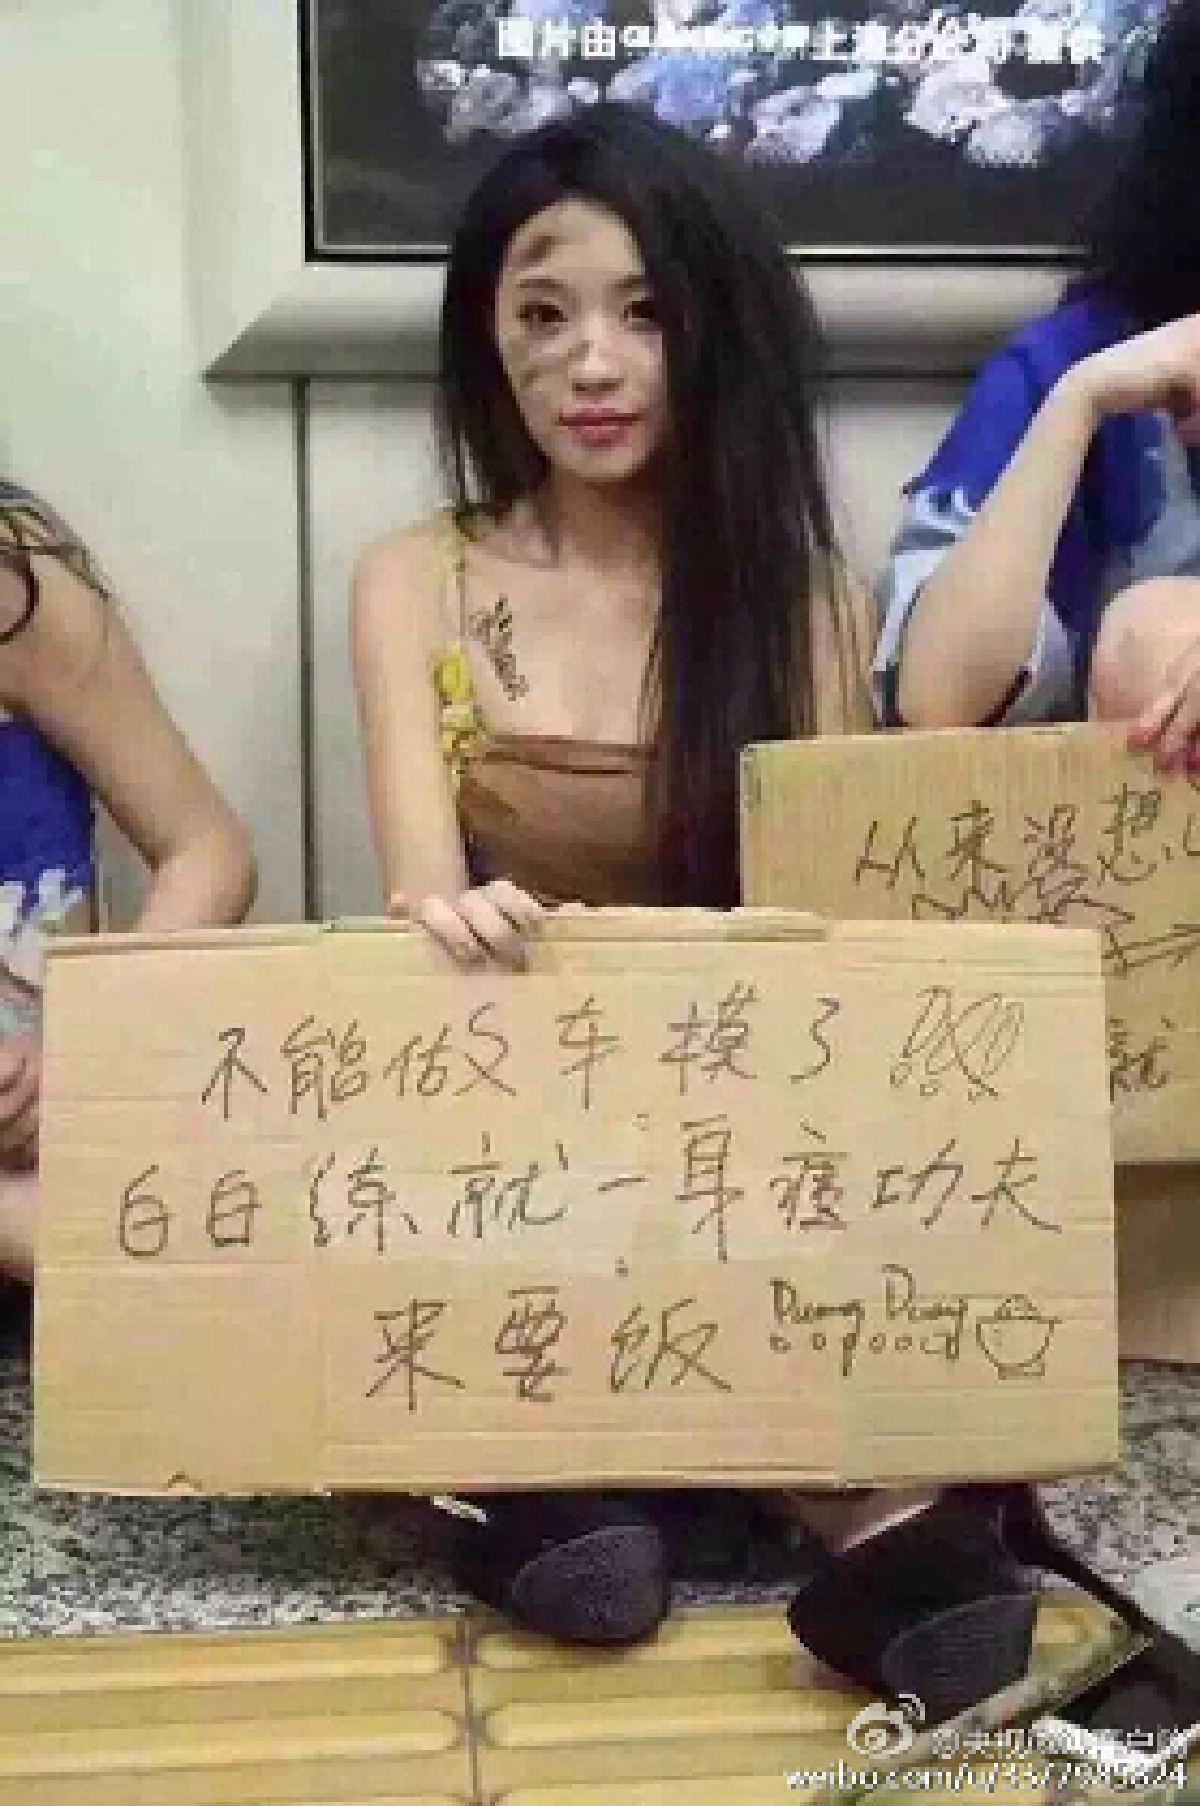 图片由
从来没想
就
不能做车模了
白白练就一身疲功夫
来要饭
Duang Duang
weibo.com/u/3377985824